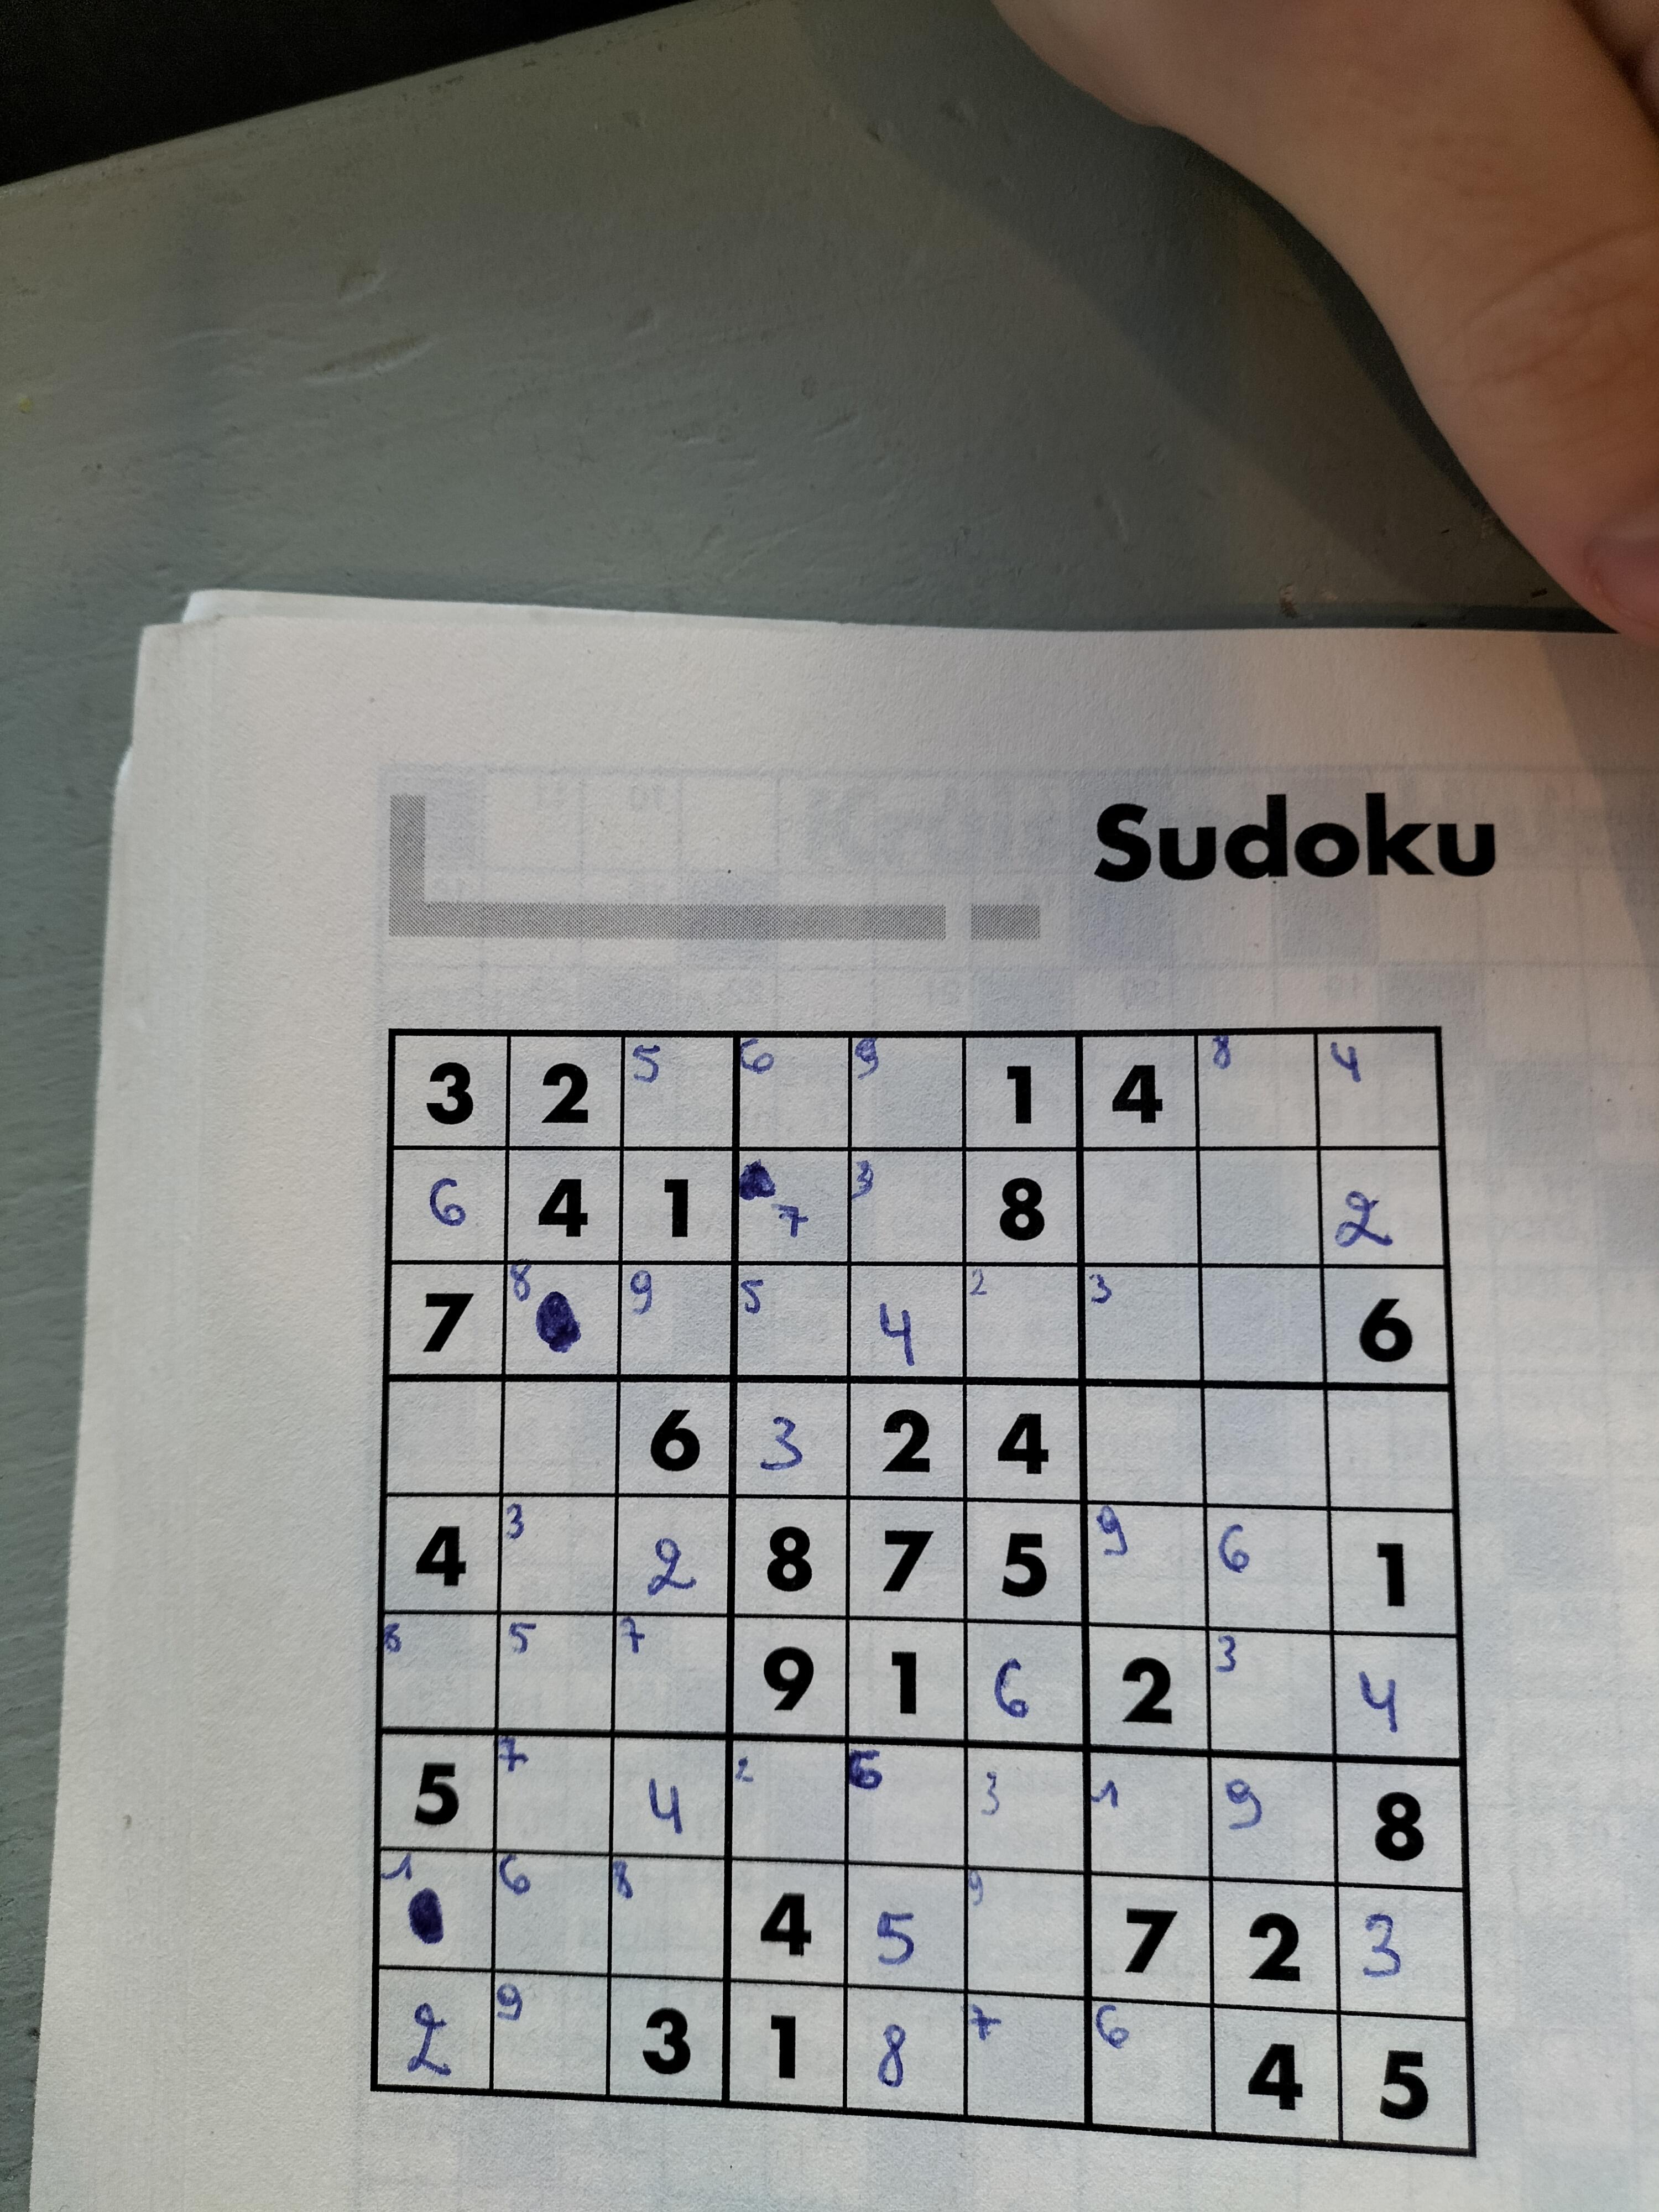 Sudoku
3 2 5 6 9 1 4 8 4
6 4 1 7 3 8 2
7 8 9 5 4 2 3 6
6 3 2 4
4 3 2 8 7 5 9 6 1
8 5 7 9 1 6 2 3 4
5 7 4 2 6 3 1 9 8
1 6 8 4 5 9 7 2 3
2 9 3 1 8 7 6 4 5